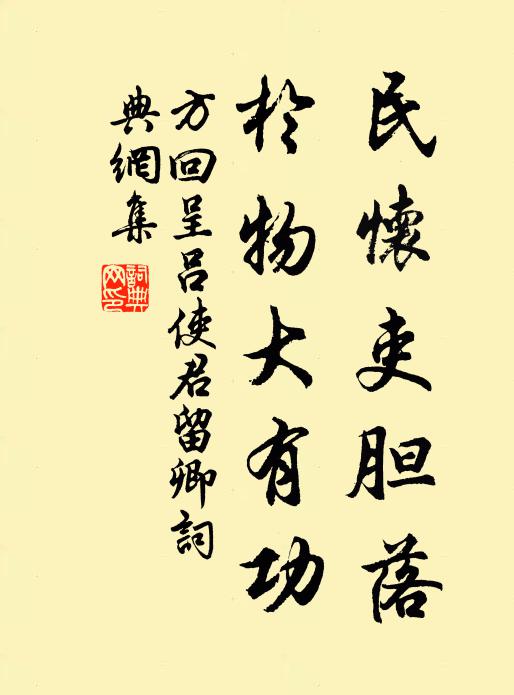 民懷吏胆落
於物大有功
方回呈呂使君留卿詞
典網集
詞典網印